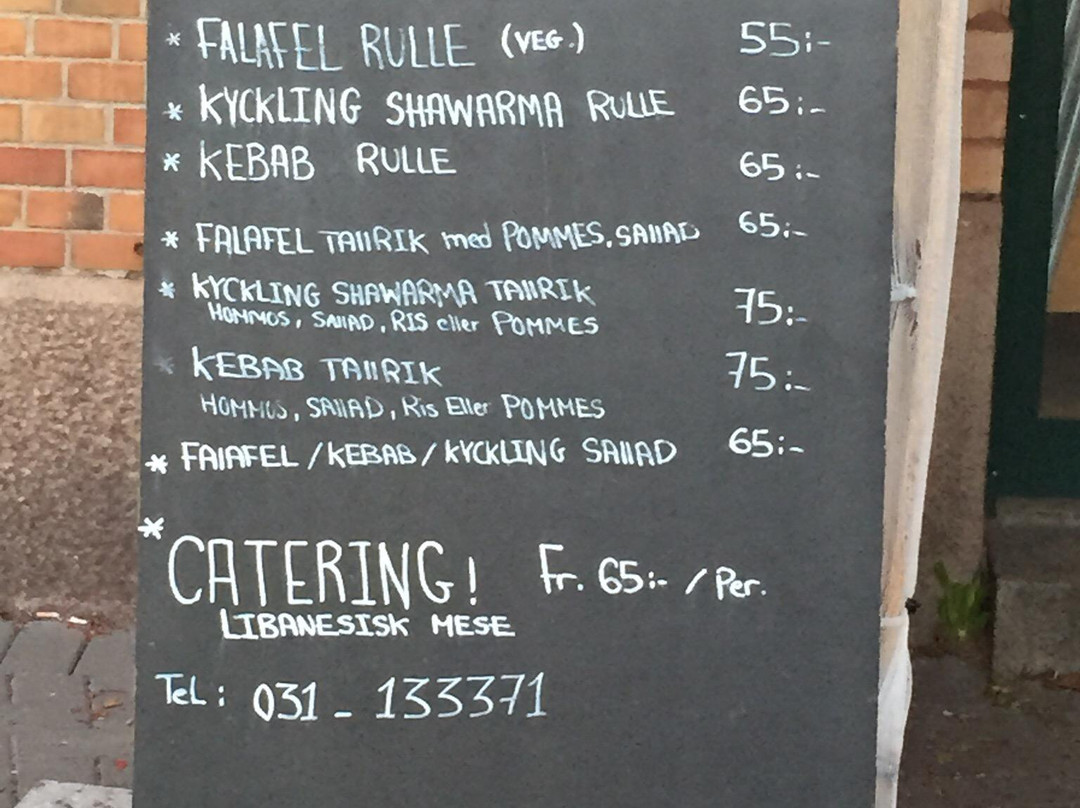 * FALAFEL RULLE (VEG.) 55:-
* KYCKLING SHAWARMA RULLE 65:-
* KEBAB RULLE 65:-
* FALAFEL TALLRIK med POMMES, SALLAD 65:-
* KYCKLING SHAWARMA TALLRIK 75:-
HOMMOS, SALLAD, RIS eller POMMES
* KEBAB TALLRIK 75:-
HOMMUS, SALLAD, Ris Eller POMMES
* FALAFEL/KEBAB/KYCKLING SALLAD 65:-
* CATERING! Fr. 65:- / Per.
LIBANESISK MESE
TeL: 031 - 133371